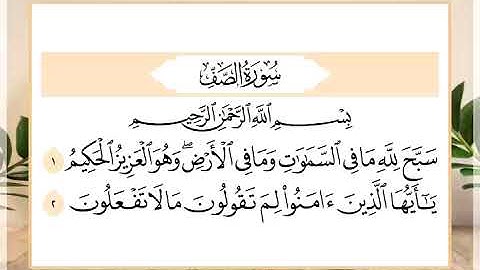 سُورَةُ الصَّفِّ
بِسْمِ ٱللَّهِ ٱلرَّحْمَٰنِ ٱلرَّحِيمِ
سَبَّحَ لِلَّهِ مَا فِى ٱلسَّمَٰوَٰتِ وَمَا فِى ٱلْأَرْضِ ۖ وَهُوَ ٱلْعَزِيزُ ٱلْحَكِيمُ ١
يَٰٓأَيُّهَا ٱلَّذِينَ ءَامَنُوا۟ لِمَ تَقُولُونَ مَا لَا تَفْعَلُونَ ٢